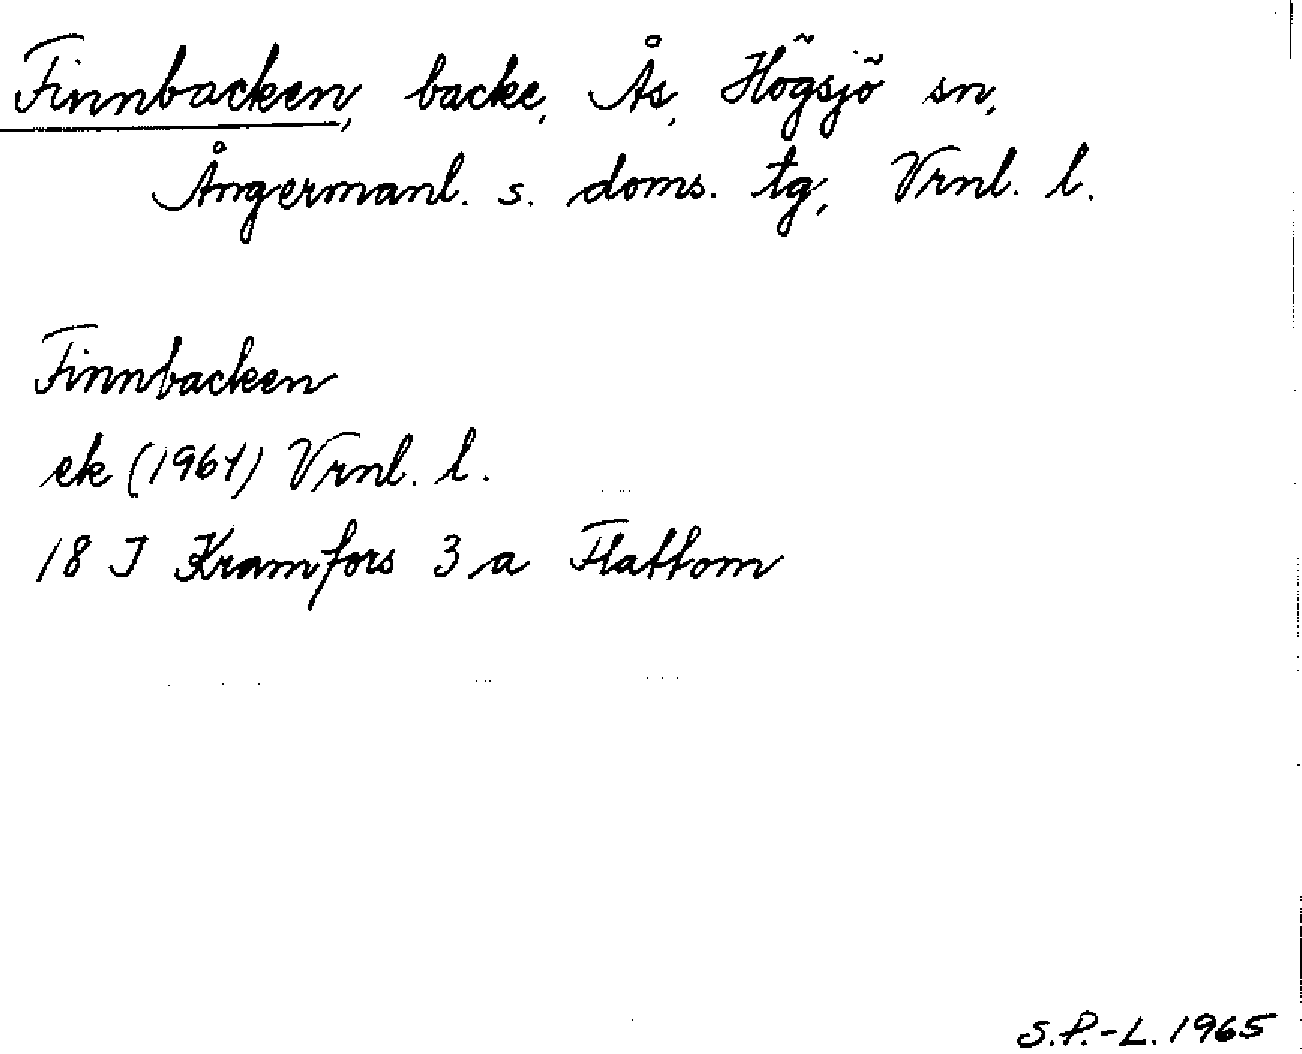 Finnbacken, backe, Ås, Högsjö sn,
Ångermanl. s. doms. tg, Vrnl. l.
Finnbacken
ek (1961) Vrnl. l.
18 I Kramfors 3 a Flattom
S.P.-L. 1965